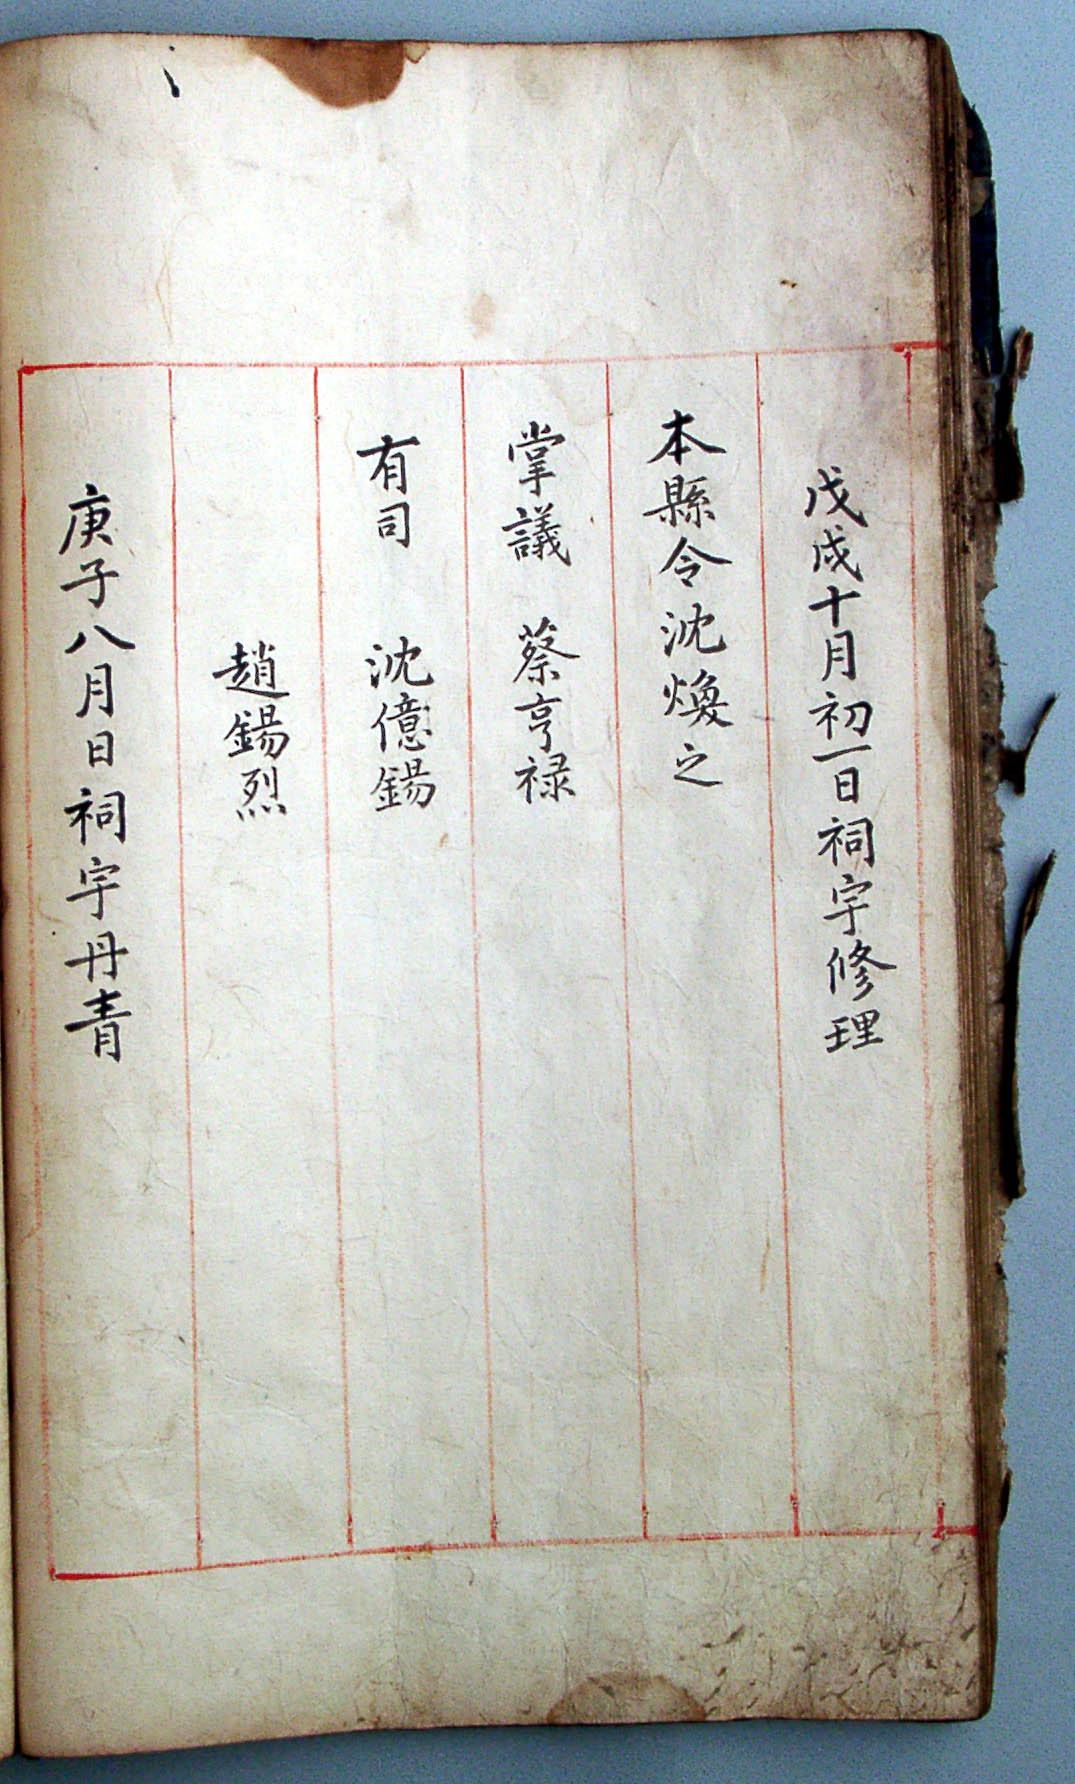 戊戌十月初一日祠宇修理
本縣令沈煥之
掌議 蔡亨禄
有司 沈億錫
趙錫烈
庚子八月日祠宇丹青